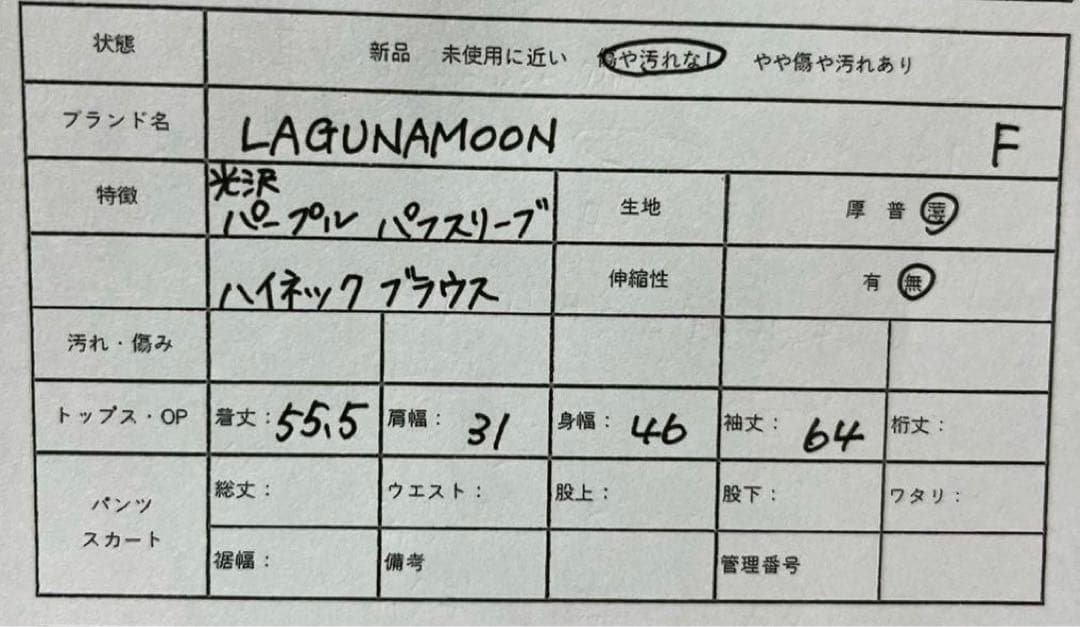 状態 新品 未使用に近い 傷や汚れなし やや傷や汚れあり
ブランド名 LAGUNAMOON F
特徴 光沢
パープル パフスリーブ 生地 厚 普 薄
ハイネック ブラウス 伸縮性 有 無
汚れ・傷み
トップス・OP 着丈：55.5 肩幅：31 身幅：46 袖丈：64 裄丈：
パンツ 総丈： ウエスト： 股上： 股下： ワタリ：
スカート
裾幅： 備考 管理番号